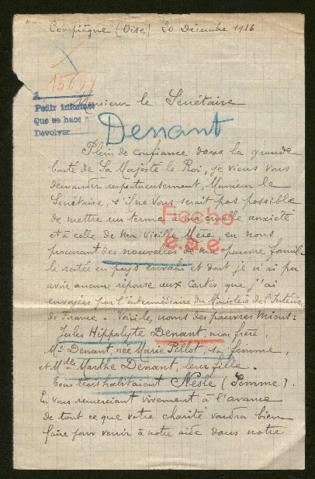 Compiègne (Oise) 20 Décembre 1916
Monsieur le Secrétaire
Pedir informes
Que se hace
Devolver
Denant
Plein de confiance dans la grande
bonté de Sa Majesté le Roi, je viens vous
demander respectueusement, Monsieur le
Secrétaire, s'il ne vous serait pas possible
de mettre un terme à ma cruelle anxiété
et à celle de ma vieille Mère, en nous
procurant des nouvelles de ma pauvre famil-
le restée en pays envahi et dont je n'ai pu
avoir aucune réponse aux cartes que j'ai
envoyées par l'intermédiaire du Ministère de l'Intérieur
de France. Voici les noms des pauvres miens:
Jules Hippolyte Denant, mon frère,
Me Denant, née Marie Pillot, sa femme,
et Melle Marthe Denant, leur fille.
Tous trois habitaient Nesle (Somme).
En vous remerciant vivement à l'avance
de tout ce que votre charité voudra bien
faire pour venir à notre aide dans notre
Hecho
e.s.e.